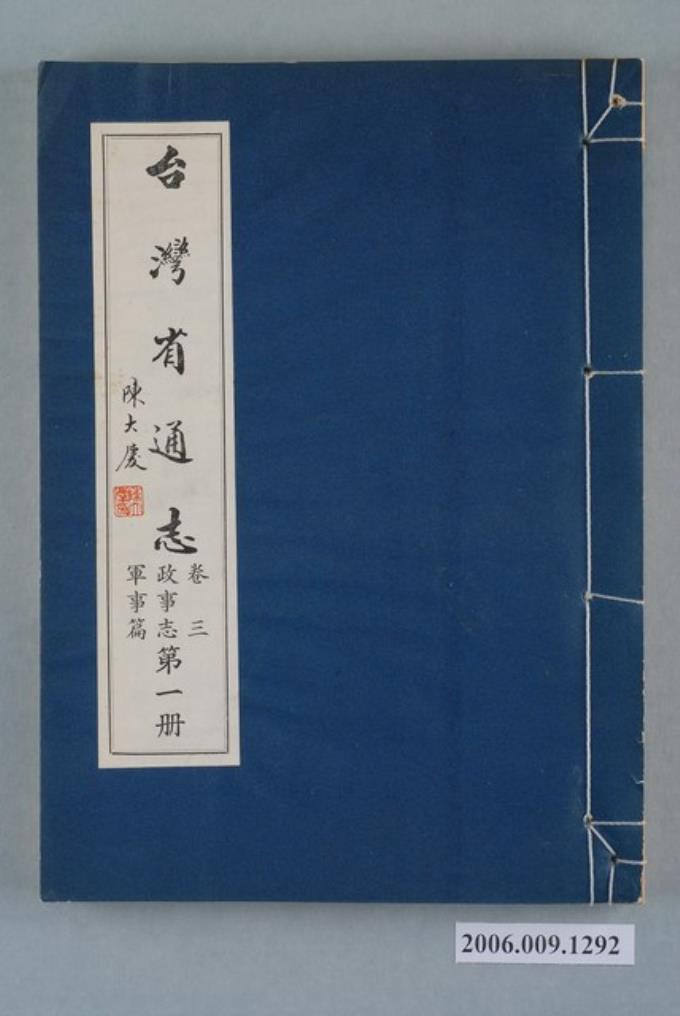 台灣省通志
卷三
政事志
軍事篇
第一册
陳大慶
2006.009.1292